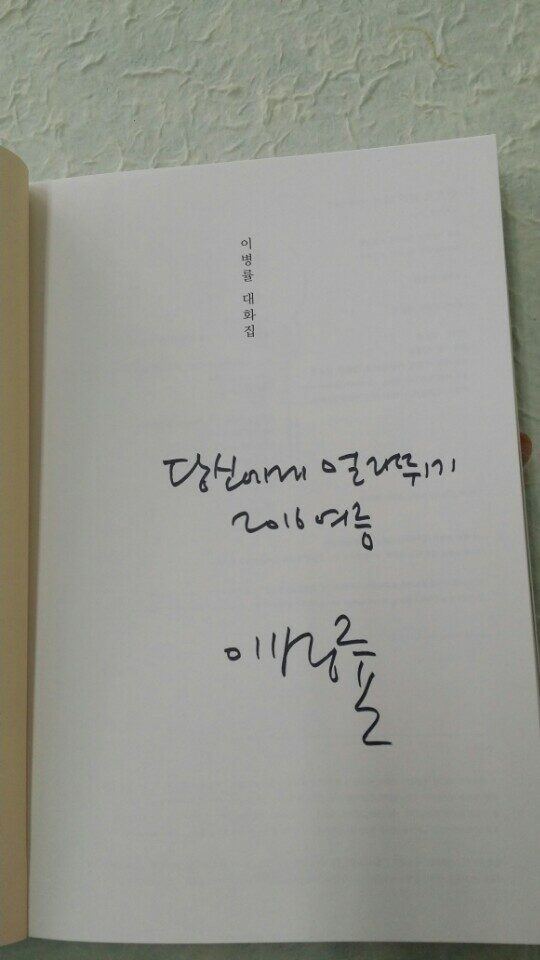 이병률 대화집
당신에게 열려뛰기
2016 여름
이병률